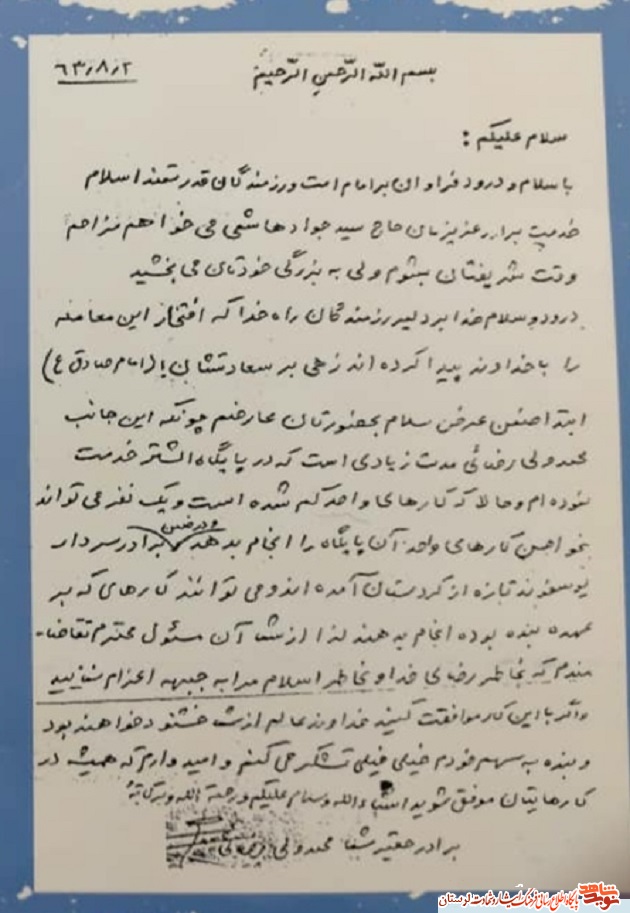 بسم الله الرحمن الرحیم
۶۳٫۸٫۲
سلام علیکم :
با سلام و درود فراوان بر امام امت و رزمندگان قدرتمند اسلام
خدمت برادر عزیزمان حاج سید جواد هاشمی می خواهم مزاحم
وقت شریفتان بشوم ولی به بزرگی خودتان می بخشید
درود و سلام خدا بر دلیر رزمندگان راه خدا که افتخار این معامله
را با خداوند پیدا کرده اند زهی بر سعادتشان ! (امام صادق ع)
ابتدا ضمن عرض سلام بحضورتان عارضم چونکه این جانب
محمد ولی رضائی مدت زیادی است که در پایگاه الشتر خدمت
نموده ام و حالا که کارهای واحد کم شده است و یک نفر می تواند
بنحو احسن کارهای واحد آن پایگاه را انجام بدهد و در ضمن برادر سردار
یوسفوند تازه از کردستان آمده اند و می توانند کارهای که بر
عهده بنده بوده انجام بدهند لذا از شما آن مسئول محترم تقاضا-
مندم که بخاطر رضای خدا و بخاطر اسلام مرا به جبهه اعزام نمایید
و اگر با این کار موافقت کنید خداوند عالم از شما خشنود خواهند بود
و بنده به سهم خودم خیلی خیلی تشکر می کنم و امید وارم که همیشه در
کارهایتان موفق شوید انشاءالله و سلام علیکم و رحمة الله و برکاته
برادر حقیر شما محمد ولی رضائی
پایگاه اطلاع رسانی فرهنگ ایثار و شهادت لرستان
نوید شاهد